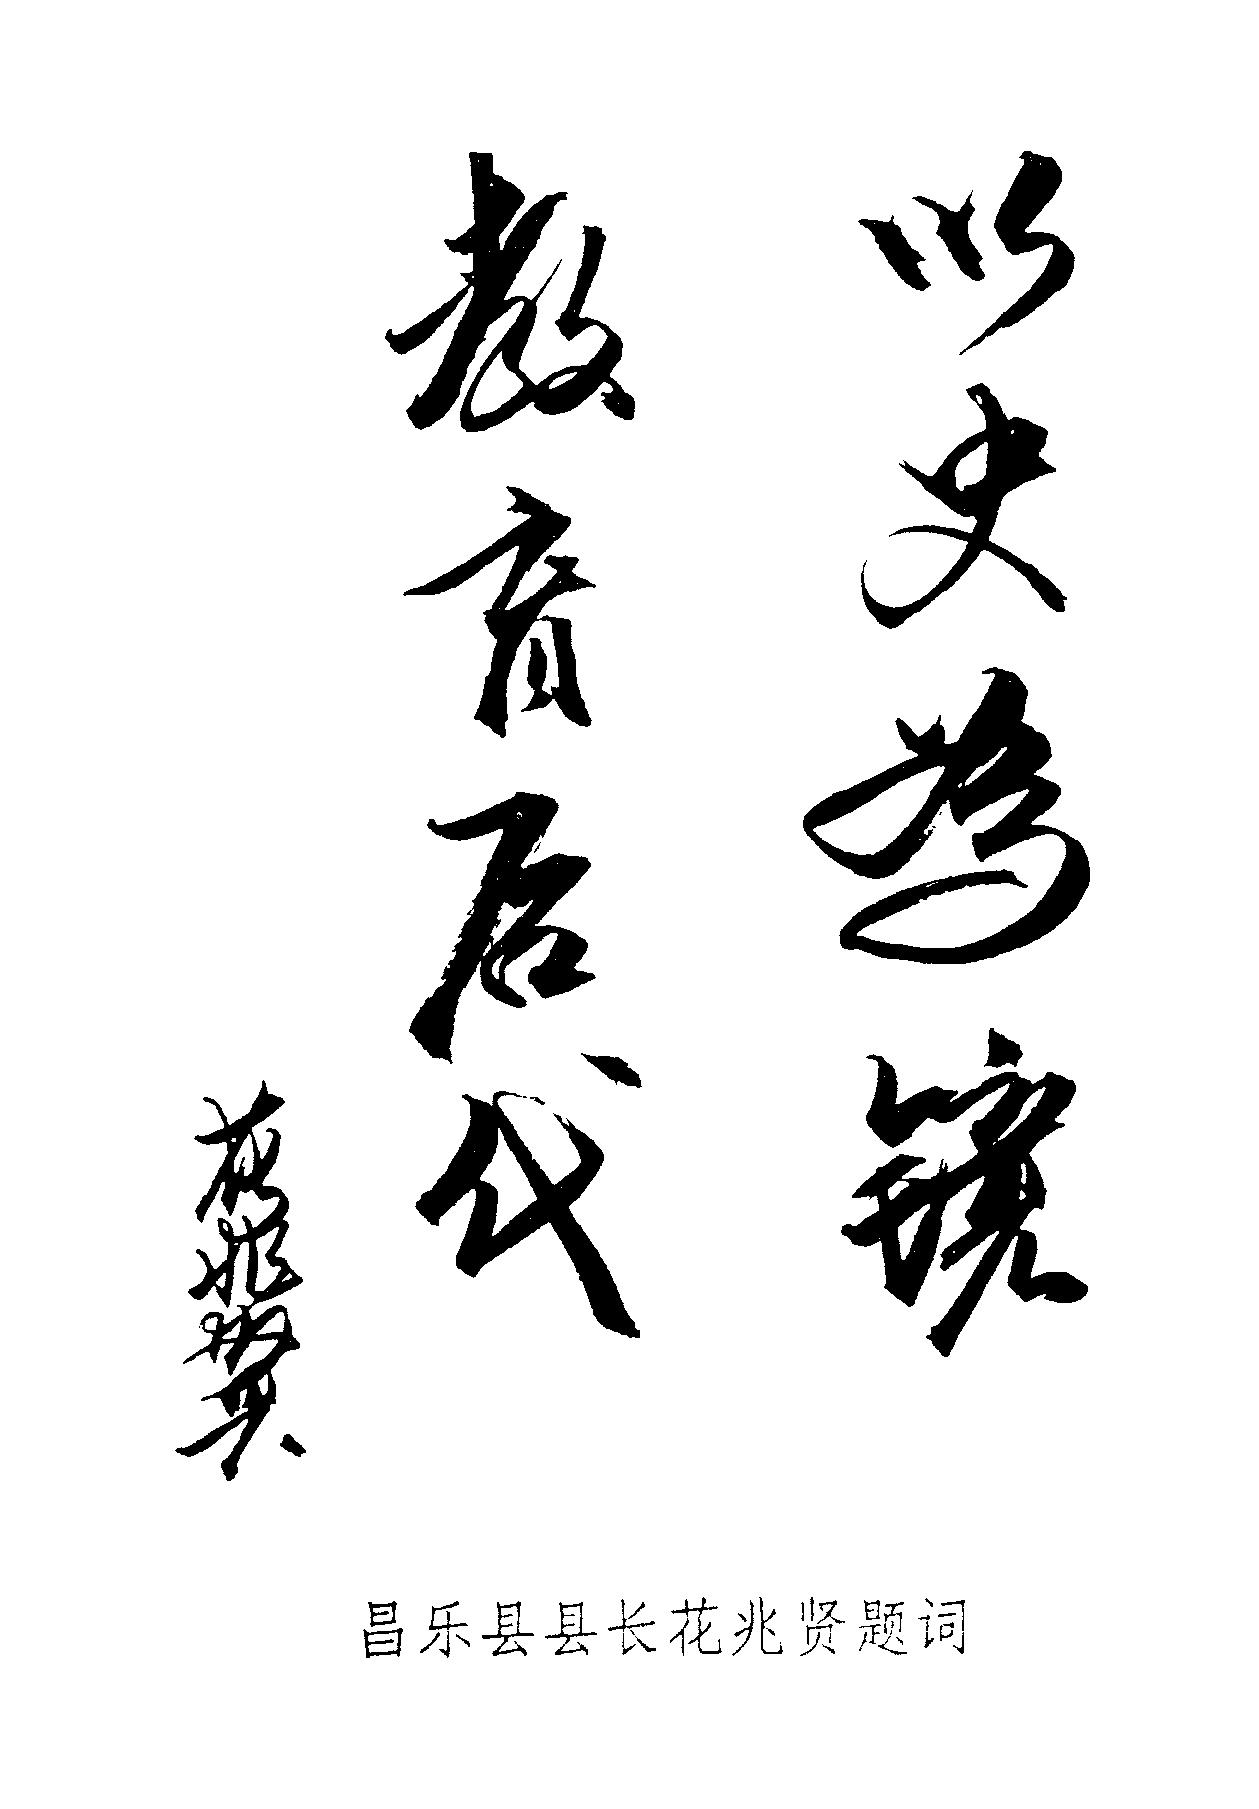 以史為镜
教育后代
花兆贤
昌乐县县长花兆贤题词